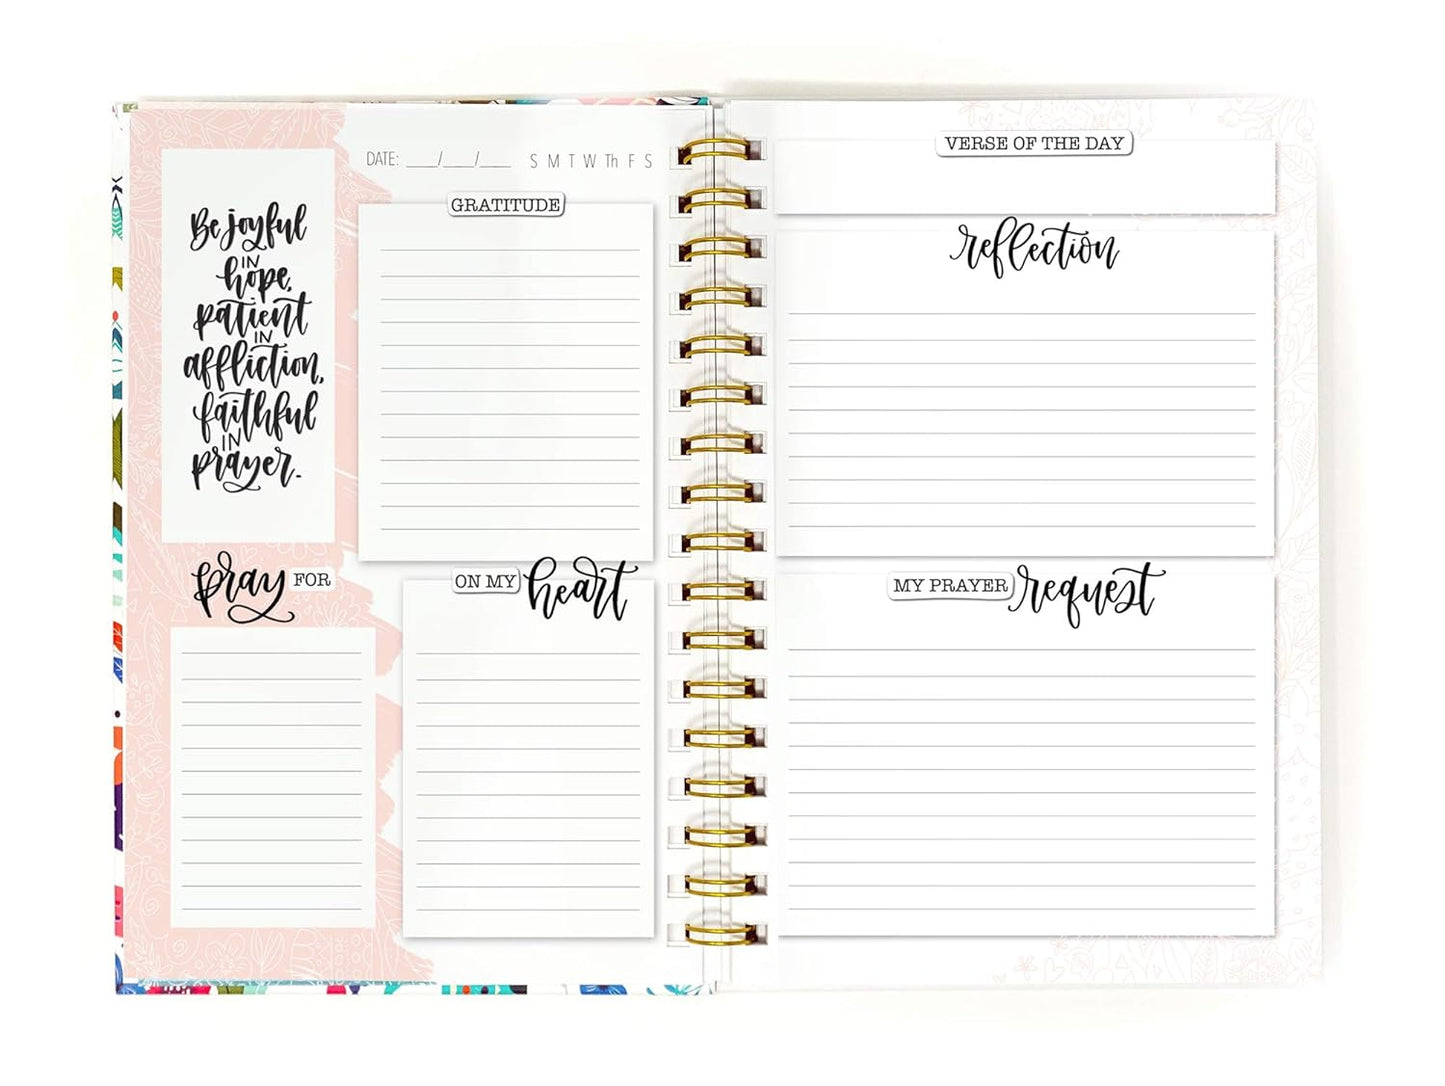 Be joyful
IN
hope,
patient
IN
affliction,
faithful
IN
prayer.
DATE: ___/___/___ S M T W Th F S
GRATITUDE
pray FOR
ON MY heart
VERSE OF THE DAY
reflection
MY PRAYER request